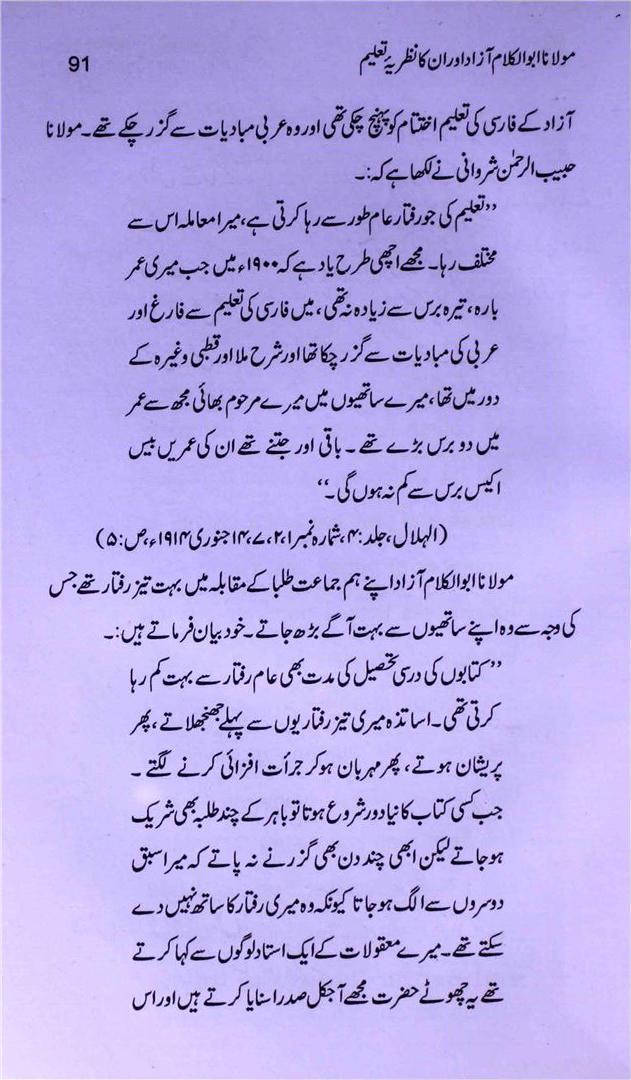 مولانا ابوالکلام آزاد اور ان کا نظریۂ تعلیم 91
آزاد کے فارسی کی تعلیم اختتام کو پہنچ چکی تھی اور وہ عربی مبادیات سے گزر چکے تھے۔ مولانا
حبیب الرحمٰن شروانی نے لکھا ہے کہ:۔
’’تعلیم کی جو رفتار عام طور سے رہا کرتی ہے، میرا معاملہ اس سے
مختلف رہا۔ مجھے اچھی طرح یاد ہے کہ ۱۹۰۰ء میں جب میری عمر
بارہ، تیرہ برس سے زیادہ نہ تھی، میں فارسی کی تعلیم سے فارغ اور
عربی کی مبادیات سے گزر چکا تھا اور شرح ملا اور قطبی وغیرہ کے
دور میں تھا، میرے ساتھیوں میں میرے مرحوم بھائی مجھ سے عمر
میں دو برس بڑے تھے ۔ باقی اور جتنے تھے ان کی عمریں بیس
اکیس برس سے کم نہ ہوں گی۔‘‘
(الہلال، جلد: ۴، شمارہ نمبر ۱،۲، ۷، ۱۴ جنوری ۱۹۱۴ء، ص: ۵)
مولانا ابوالکلام آزاد اپنے ہم جماعت طلبا کے مقابلہ میں بہت تیز رفتار تھے جس
کی وجہ سے وہ اپنے ساتھیوں سے بہت آگے بڑھ جاتے۔ خود بیان فرماتے ہیں:۔
’’کتابوں کی درسی تحصیل کی مدت بھی عام رفتار سے بہت کم رہا
کرتی تھی۔ اساتذہ میری تیز رفتاریوں سے پہلے جھنجھلاتے، پھر
پریشان ہوتے، پھر مہربان ہوکر جرأت افزائی کرنے لگتے ۔
جب کسی کتاب کا نیا دور شروع ہوتا تو باہر کے چند طلبہ بھی شریک
ہوجاتے لیکن ابھی چند دن بھی گزرنے نہ پاتے کہ میرا سبق
دوسروں سے الگ ہوجاتا کیونکہ وہ میری رفتار کا ساتھ نہیں دے
سکتے تھے۔ میرے معقولات کے ایک استاد لوگوں سے کہا کرتے
تھے یہ چھوٹے حضرت مجھے آجکل صدرا سنایا کرتے ہیں اور اس